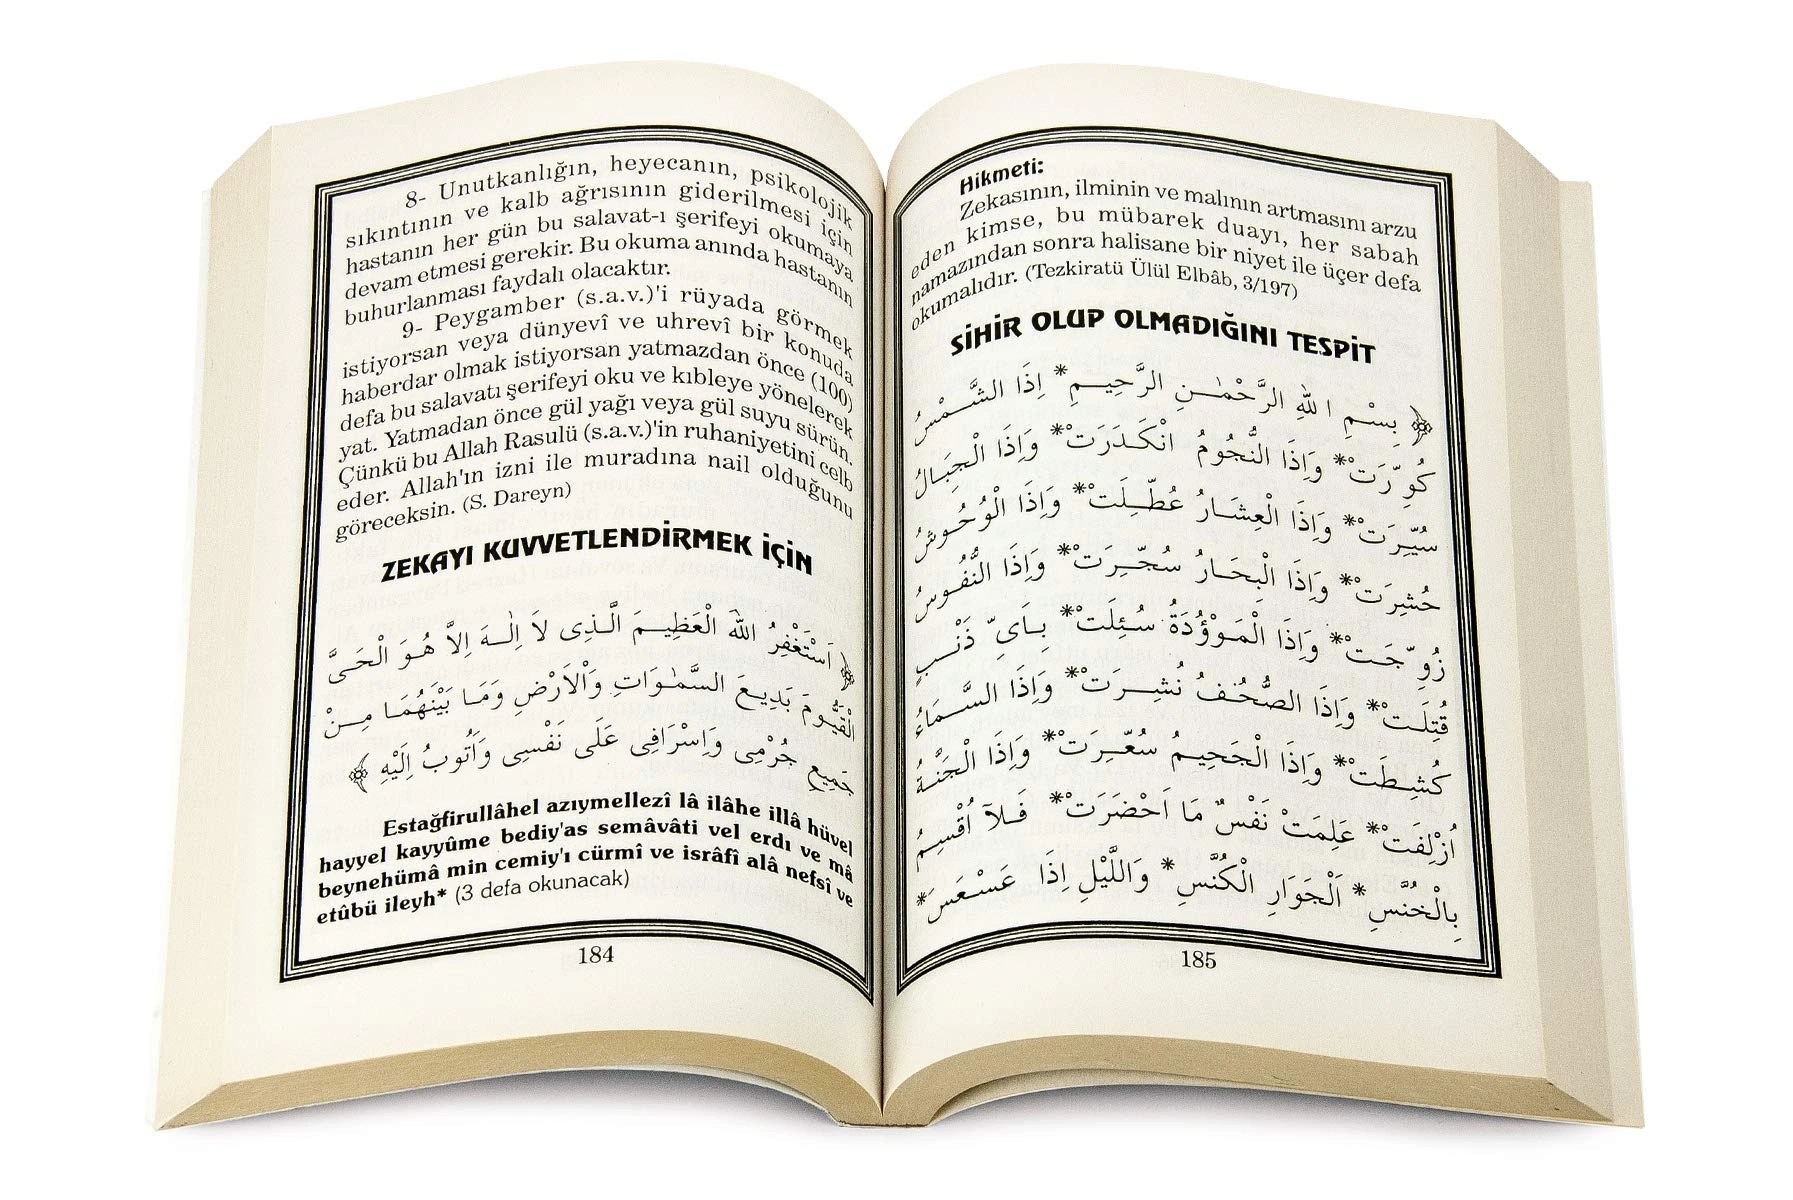 8- Unutkanlığın, heyecanın, psikolojik
sıkıntının ve kalb ağrısının giderilmesi için
hastanın her gün bu salavat-ı şerifeyi okumaya
devam etmesi gerekir. Bu okuma anında hastanın
buhurlanması faydalı olacaktır.
9- Peygamber (s.a.v.)'i rüyada görmek
istiyorsan veya dünyevî ve uhrevî bir konuda
haberdar olmak istiyorsan yatmazdan önce (100)
defa bu salavatı şerifeyi oku ve kıbleye yönelerek
yat. Yatmadan önce gül yağı veya gül suyu sürün.
Çünkü bu Allah Rasulü (s.a.v.)'in ruhaniyetini celb
eder. Allah'ın izni ile muradına nail olduğunu
göreceksin. (S. Dareyn)
ZEKAYI KUVVETLENDİRMEK İÇİN
﴿ اَسْتَغْفِرُ اللّٰهَ الْعَظِيمَ الَّذِى لَا اِلٰهَ اِلَّا هُوَ الْحَىَّ
الْقَيُّومَ بَدِيعَ السَّمٰوَاتِ وَالْاَرْضِ وَمَا بَيْنَهُمَا مِنْ
جَمِيعِ جُرْمِى وَاِسْرَافِى عَلَى نَفْسِى وَاَتُوبُ اِلَيْهِ ﴾
Estağfirullâhel azıymellezî lâ ilâhe illâ hüvel
hayyel kayyûme bediy'as semâvâti vel erdı ve mâ
beynehümâ min cemiy'ı cürmî ve isrâfî alâ nefsî ve
etûbü ileyh* (3 defa okunacak)
184
Hikmeti:
Zekasının, ilminin ve malının artmasını arzu
eden kimse, bu mübarek duayı, her sabah
namazından sonra halisane bir niyet ile üçer defa
okumalıdır. (Tezkiratü Ülül Elbâb, 3/197)
SİHİR OLUP OLMADIĞINI TESPİT
﴿ بِسْمِ اللّٰهِ الرَّحْمٰنِ الرَّحِيمِ * اِذَا الشَّمْسُ
كُوِّرَتْ * وَاِذَا النُّجُومُ انْكَدَرَتْ * وَاِذَا الْجِبَالُ
سُيِّرَتْ * وَاِذَا الْعِشَارُ عُطِّلَتْ * وَاِذَا الْوُحُوشُ
حُشِرَتْ * وَاِذَا الْبِحَارُ سُجِّرَتْ * وَاِذَا النُّفُوسُ
زُوِّجَتْ * وَاِذَا الْمَوْؤُدَةُ سُئِلَتْ * بِاَىِّ ذَنْبٍ
قُتِلَتْ * وَاِذَا الصُّحُفُ نُشِرَتْ * وَاِذَا السَّمَاءُ
كُشِطَتْ * وَاِذَا الْجَحِيمُ سُعِّرَتْ * وَاِذَا الْجَنَّةُ
اُزْلِفَتْ * عَلِمَتْ نَفْسٌ مَا اَحْضَرَتْ * فَلَآ اُقْسِمُ
بِالْخُنَّسِ * اَلْجَوَارِ الْكُنَّسِ * وَاللَّيْلِ اِذَا عَسْعَسَ *
185